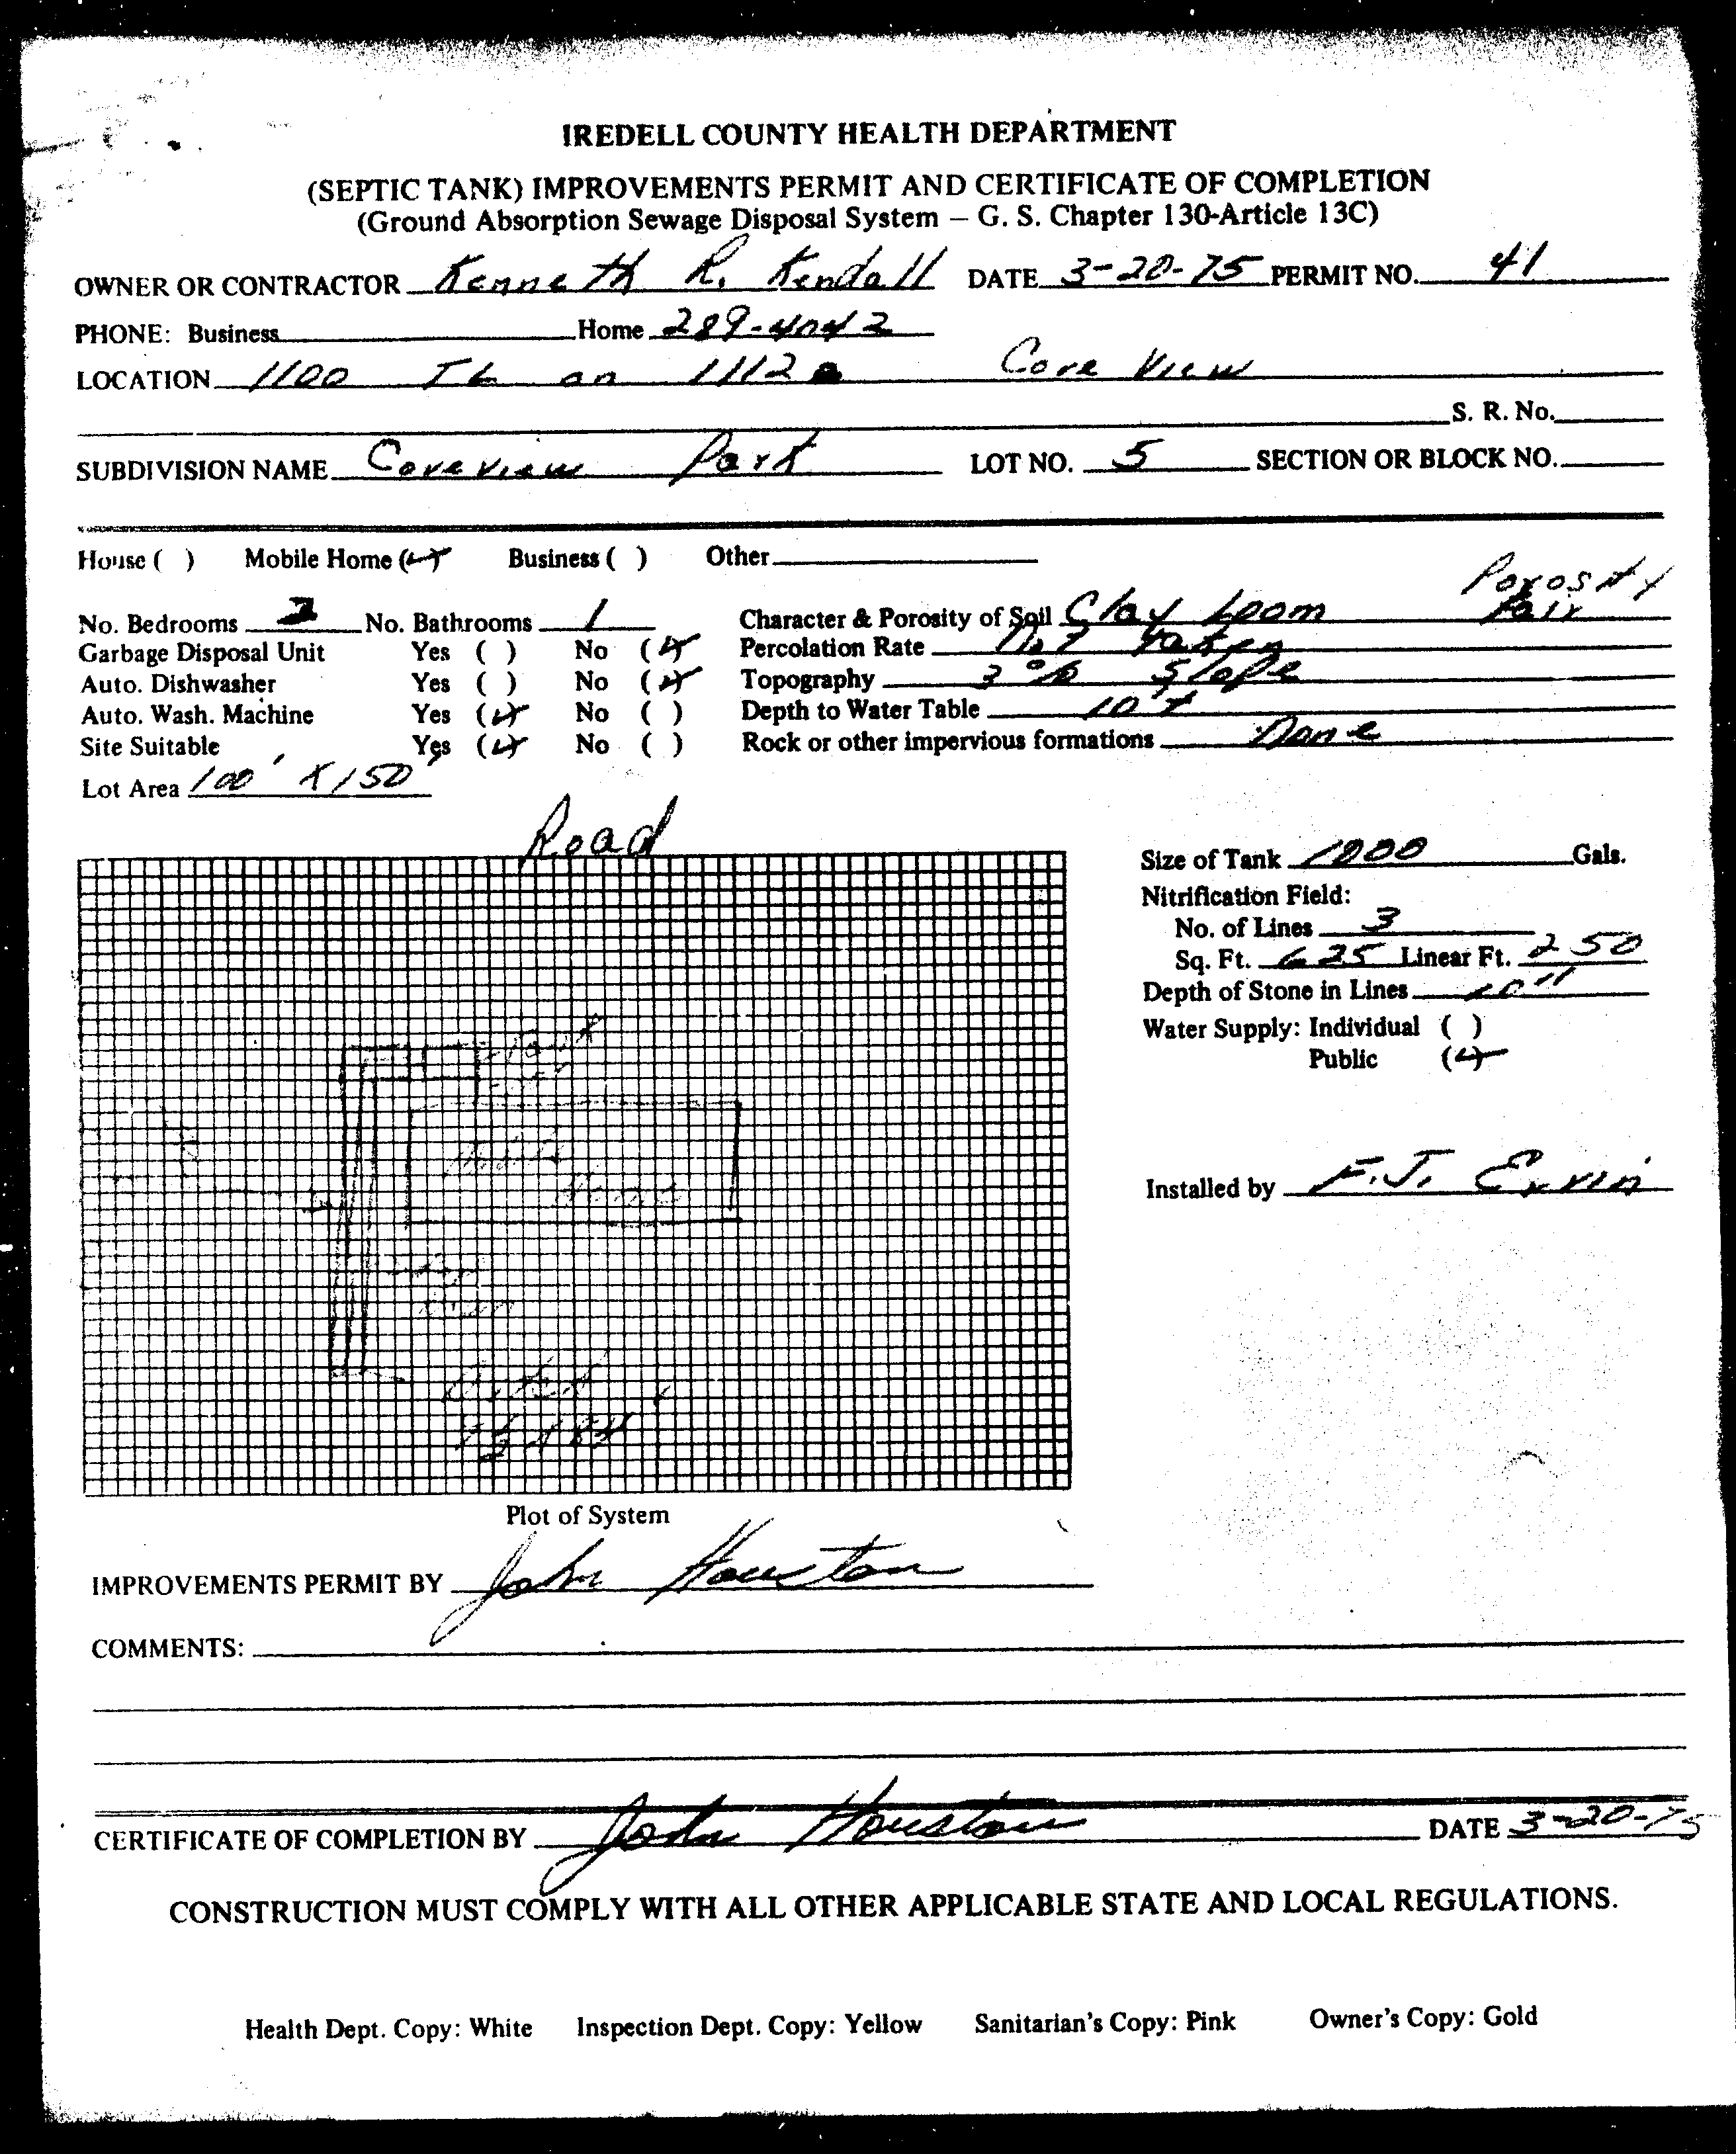 IREDELL COUNTY HEALTH DEPARTMENT
(SEPTIC TANK) IMPROVEMENTS PERMIT AND CERTIFICATE OF COMPLETION
(Ground Absorption Sewage Disposal System – G. S. Chapter 130-Article 13C)
OWNER OR CONTRACTOR Kenneth R. Kendall DATE 3-20-75 PERMIT NO. 41
PHONE: Business Home 289-4042
LOCATION 1100 TL on 1112 Cove View
S. R. No.
SUBDIVISION NAME Coveview Park LOT NO. 5 SECTION OR BLOCK NO.
House ( ) Mobile Home (✓) Business ( ) Other
No. Bedrooms No. Bathrooms 1 Character & Porosity of Soil Clay Loom Porosity Fair
Garbage Disposal Unit Yes ( ) No (✓) Percolation Rate Not taken
Auto. Dishwasher Yes ( ) No (✓) Topography 3 % Slope
Auto. Wash. Machine Yes (✓) No ( ) Depth to Water Table 10'+
Site Suitable Yes (✓) No ( ) Rock or other impervious formations None
Lot Area 100' X 150'
Road
Size of Tank 1000 Gals.
Nitrification Field:
No. of Lines 3
Sq. Ft. 625 Linear Ft. 250
Depth of Stone in Lines 10"
Water Supply: Individual ( )
Public (✓)
Mobile
Home
Installed by F.J. Ervin
Plot of System
IMPROVEMENTS PERMIT BY John Houston
COMMENTS:
CERTIFICATE OF COMPLETION BY John Houston DATE 3-20-75
CONSTRUCTION MUST COMPLY WITH ALL OTHER APPLICABLE STATE AND LOCAL REGULATIONS.
Health Dept. Copy: White Inspection Dept. Copy: Yellow Sanitarian's Copy: Pink Owner's Copy: Gold